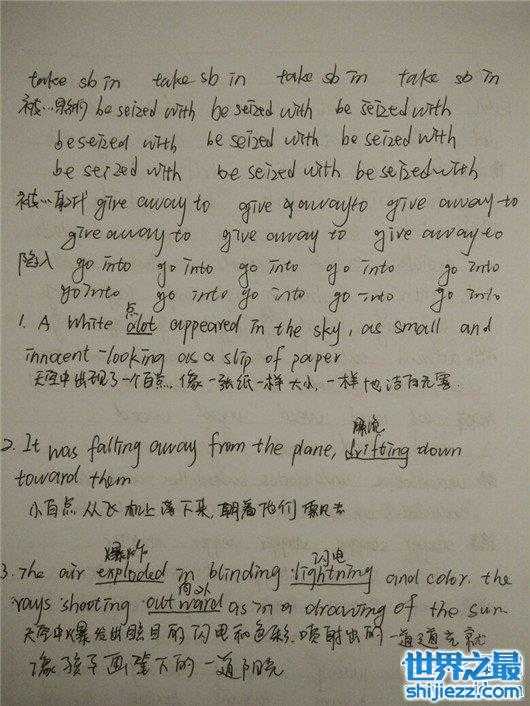 take sb in take sb in take sb in take sb in
被… be seized with be seized with be seized with
be seized with be seized with be seized with
be seized with be seized with be seized with
被…取代 give away to give away to give away to
give away to give away to give away to
陷入 go into go into go into go into go into
go into go into go into go into go into
点
1. A white dot appeared in the sky, as small and
innocent-looking as a slip of paper
天空中出现了一个白点,像一张纸一样大小,一样地洁白无害.
飘
2. It was falling away from the plane, drifting down
toward them
小白点从飞机上落下来,朝着他们飘去
爆炸 闪电
3. The air exploded in blinding lightning and color. the
向外
rays shooting outward as in a drawing of the sun
天空中爆发出眩目的闪电和色彩.喷射出的一道道光就
像孩子画笔下的一道阳光
世界之最
shijiezz.com